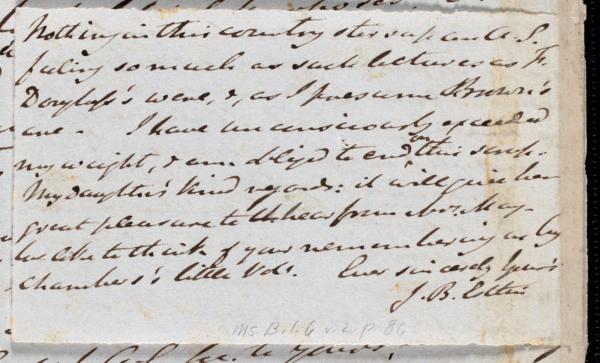 Nothing in this country stirs up an A. S.
feeling so much as such lectures as F.
Douglass's were, &, as I presume Brown's
are. I have unconsciously exceeded
my weight, & am obliged to end on this scrap.
My daughter's kind regards: it will give her
great pleasure to hear from Mrs. May.
We like to think of your remembering us by
Chambers's little Vols. Ever sincerely Yours
J. B. Estlin
Ms B.1.6 v.2. p. 86
to Yours,